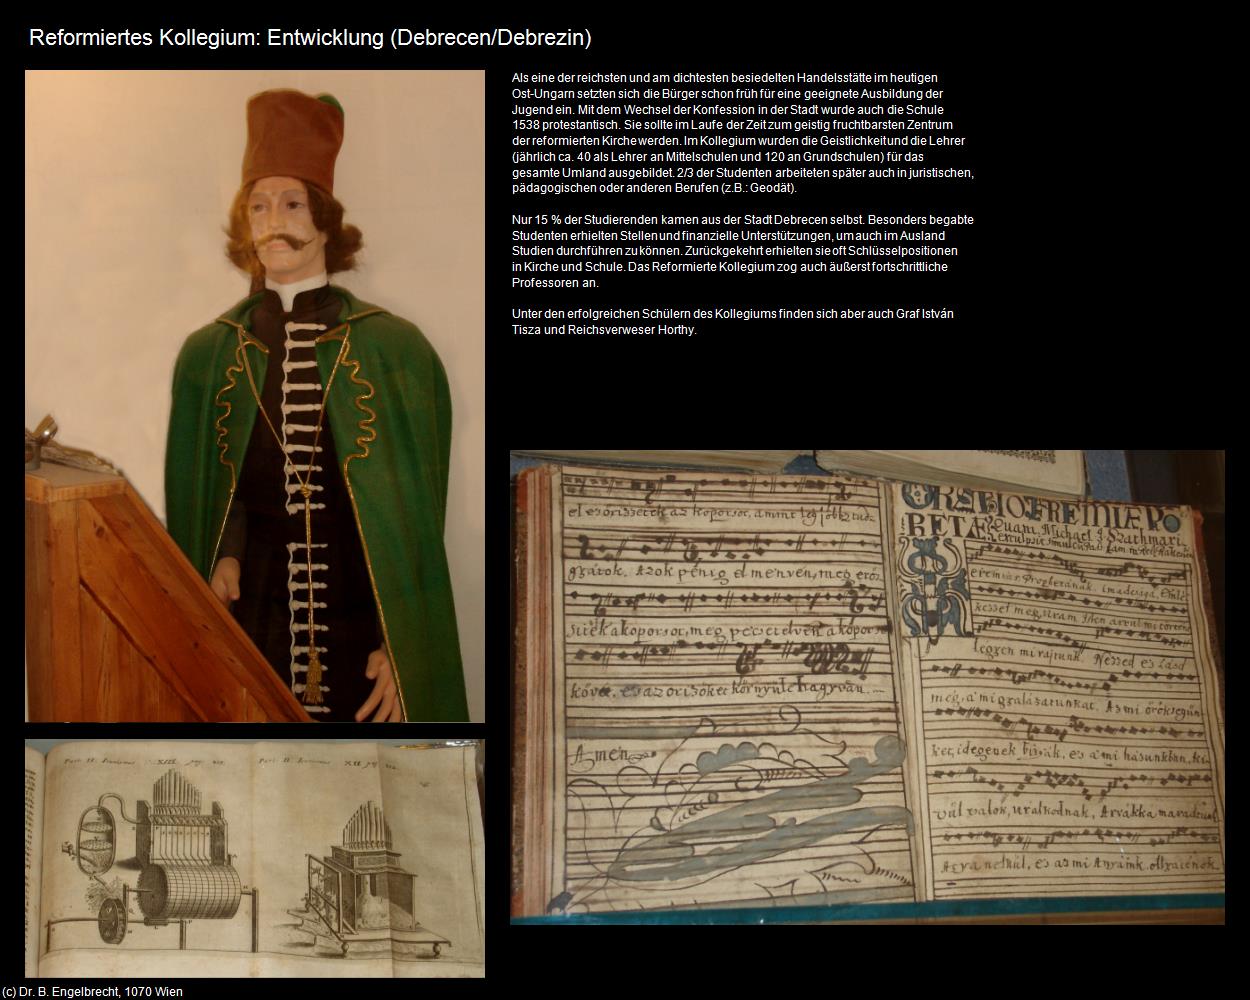 Reformiertes Kollegium: Entwicklung (Debrecen/Debrezin)
Als eine der reichsten und am dichtesten besiedelten Handelsstätte im heutigen
Ost-Ungarn setzten sich die Bürger schon früh für eine geeignete Ausbildung der
Jugend ein. Mit dem Wechsel der Konfession in der Stadt wurde auch die Schule
1538 protestantisch. Sie sollte im Laufe der Zeit zum geistig fruchtbarsten Zentrum
der reformierten Kirche werden. Im Kollegium wurden die Geistlichkeit und die Lehrer
(jährlich ca. 40 als Lehrer an Mittelschulen und 120 an Grundschulen) für das
gesamte Umland ausgebildet. 2/3 der Studenten arbeiteten später auch in juristischen,
pädagogischen oder anderen Berufen (z.B.: Geodät).
Nur 15 % der Studierenden kamen aus der Stadt Debrecen selbst. Besonders begabte
Studenten erhielten Stellen und finanzielle Unterstützungen, um auch im Ausland
Studien durchführen zu können. Zurückgekehrt erhielten sie oft Schlüsselpositionen
in Kirche und Schule. Das Reformierte Kollegium zog auch äußerst fortschrittliche
Professoren an.
Unter den erfolgreichen Schülern des Kollegiums finden sich aber auch Graf István
Tisza und Reichsverweser Horthy.
az koporsot, amint leg
Azok penig el menven, meg
a koporsot, meg
es az orizöket környüle hagyván
Amen
ORATIO IEREMIÆ PRO
BETÆ Quam Michael
meg uram Isten
mi rajtunk. Nezzed es lásd
meg, a mi gyalázatunkat. Az mi
idegenek birják, es a mi házunkban,
valok, uralkodnak, Arvákká
Atya nelkül, es az mi Anyáink
(c) Dr. B. Engelbrecht, 1070 Wien